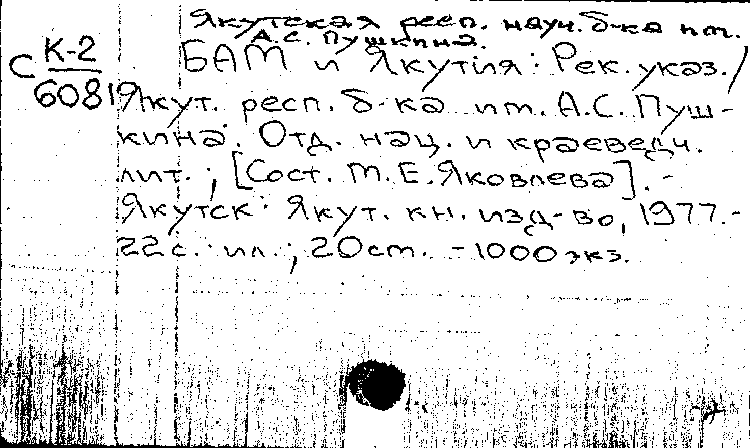 Якутская респ. науч. б-ка им.
А.С. Пушкина.
С К-2
60819
БАМ и Якутия: Рек. указ./
Якут. респ. б-ка им. А.С. Пуш-
кина. Отд. нац. и краеведч.
лит.; [Сост. М.Е. Яковлева]. -
Якутск: Якут. кн. изд-во, 1977.-
22 с.: ил.; 20 cm. - 1000 экз.